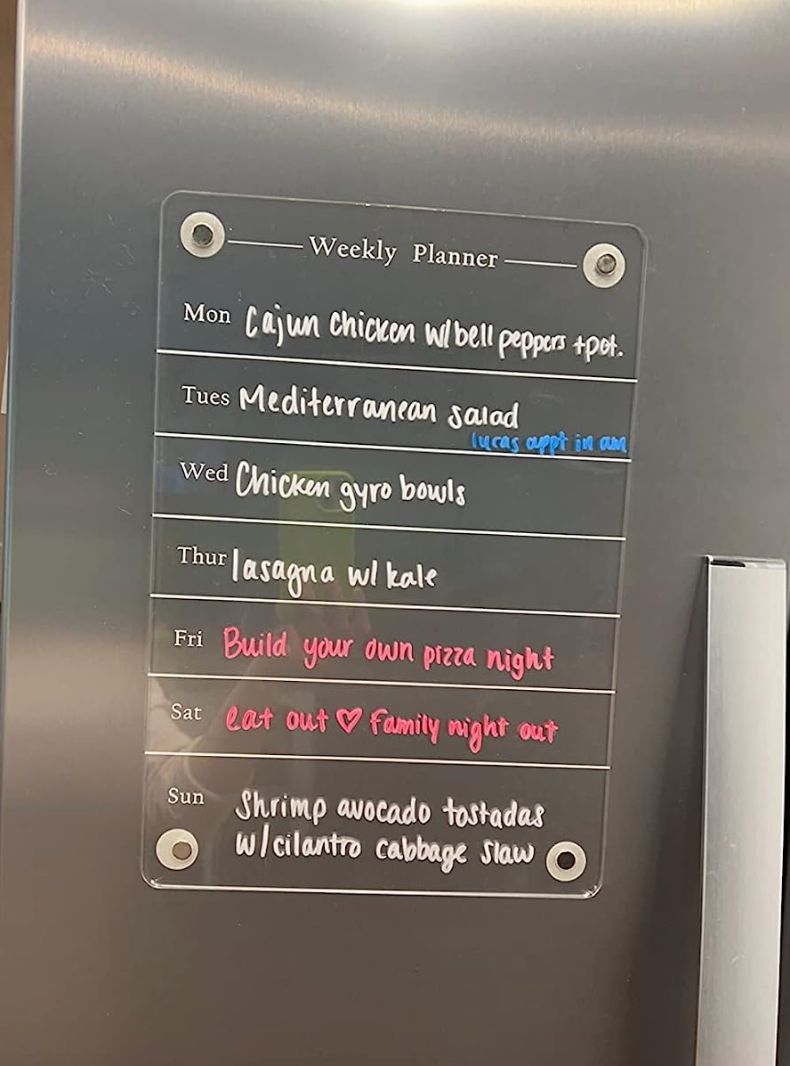 Weekly Planner
Mon Cajun Chicken w/ bell peppers + pot.
Tues Mediterranean salad
lucas appt in am
Wed Chicken gyro bowls
Thur lasagna w/ kale
Fri Build your own pizza night
Sat eat out ♡ Family night out
Sun Shrimp avocado tostadas
w/ cilantro cabbage slaw